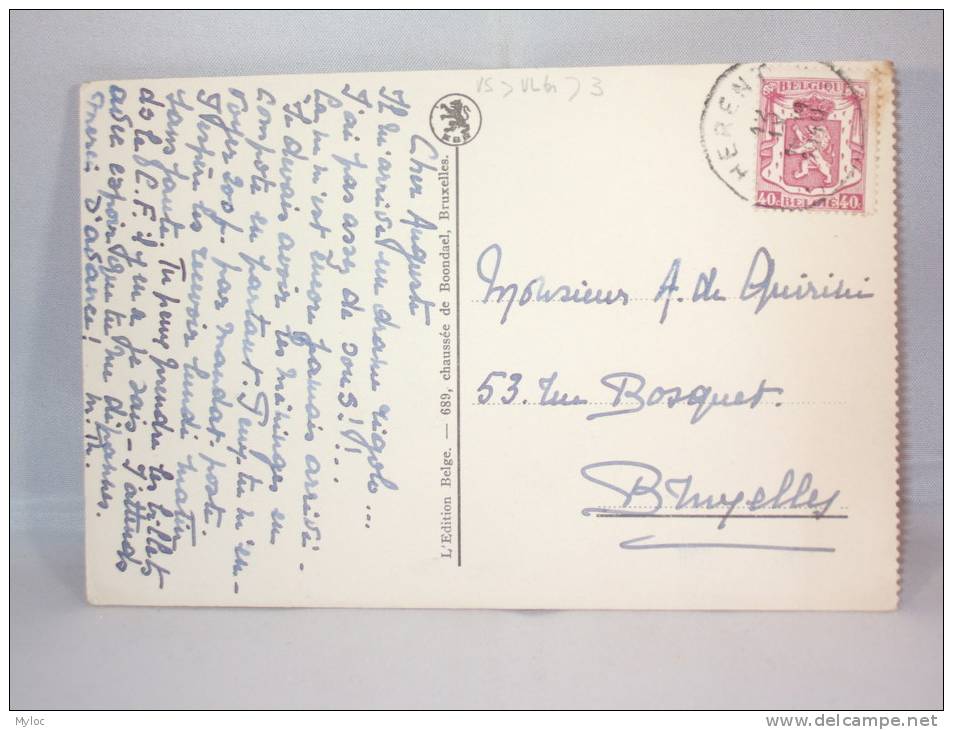 Cher Auguste
Il m'arrive un drame rigolo...
J'ai pas assez de sous!!...
Ça ne m'est encore jamais arrivé.
Je devais avoir les méninges en
compote en partant. Peux-tu m'en-
voyer 200f. par mandat-poste.
J'espère les recevoir lundi matin
sans faute. Tu peux prendre les billets
de la
F. il y en a je sais - J'attends
avec espoir que tu me dépannes.
merci d'avance! M. Th.
L'Edition Belge. — 689, chaussée de Boondael, Bruxelles.
VS > VLBr > 3
HERENT
BELGIQUE
40c BELGIË 40c
Monsieur A. de Quirini
53. rue Bosquet.
Bruxelles
Myloc
delcampe.net